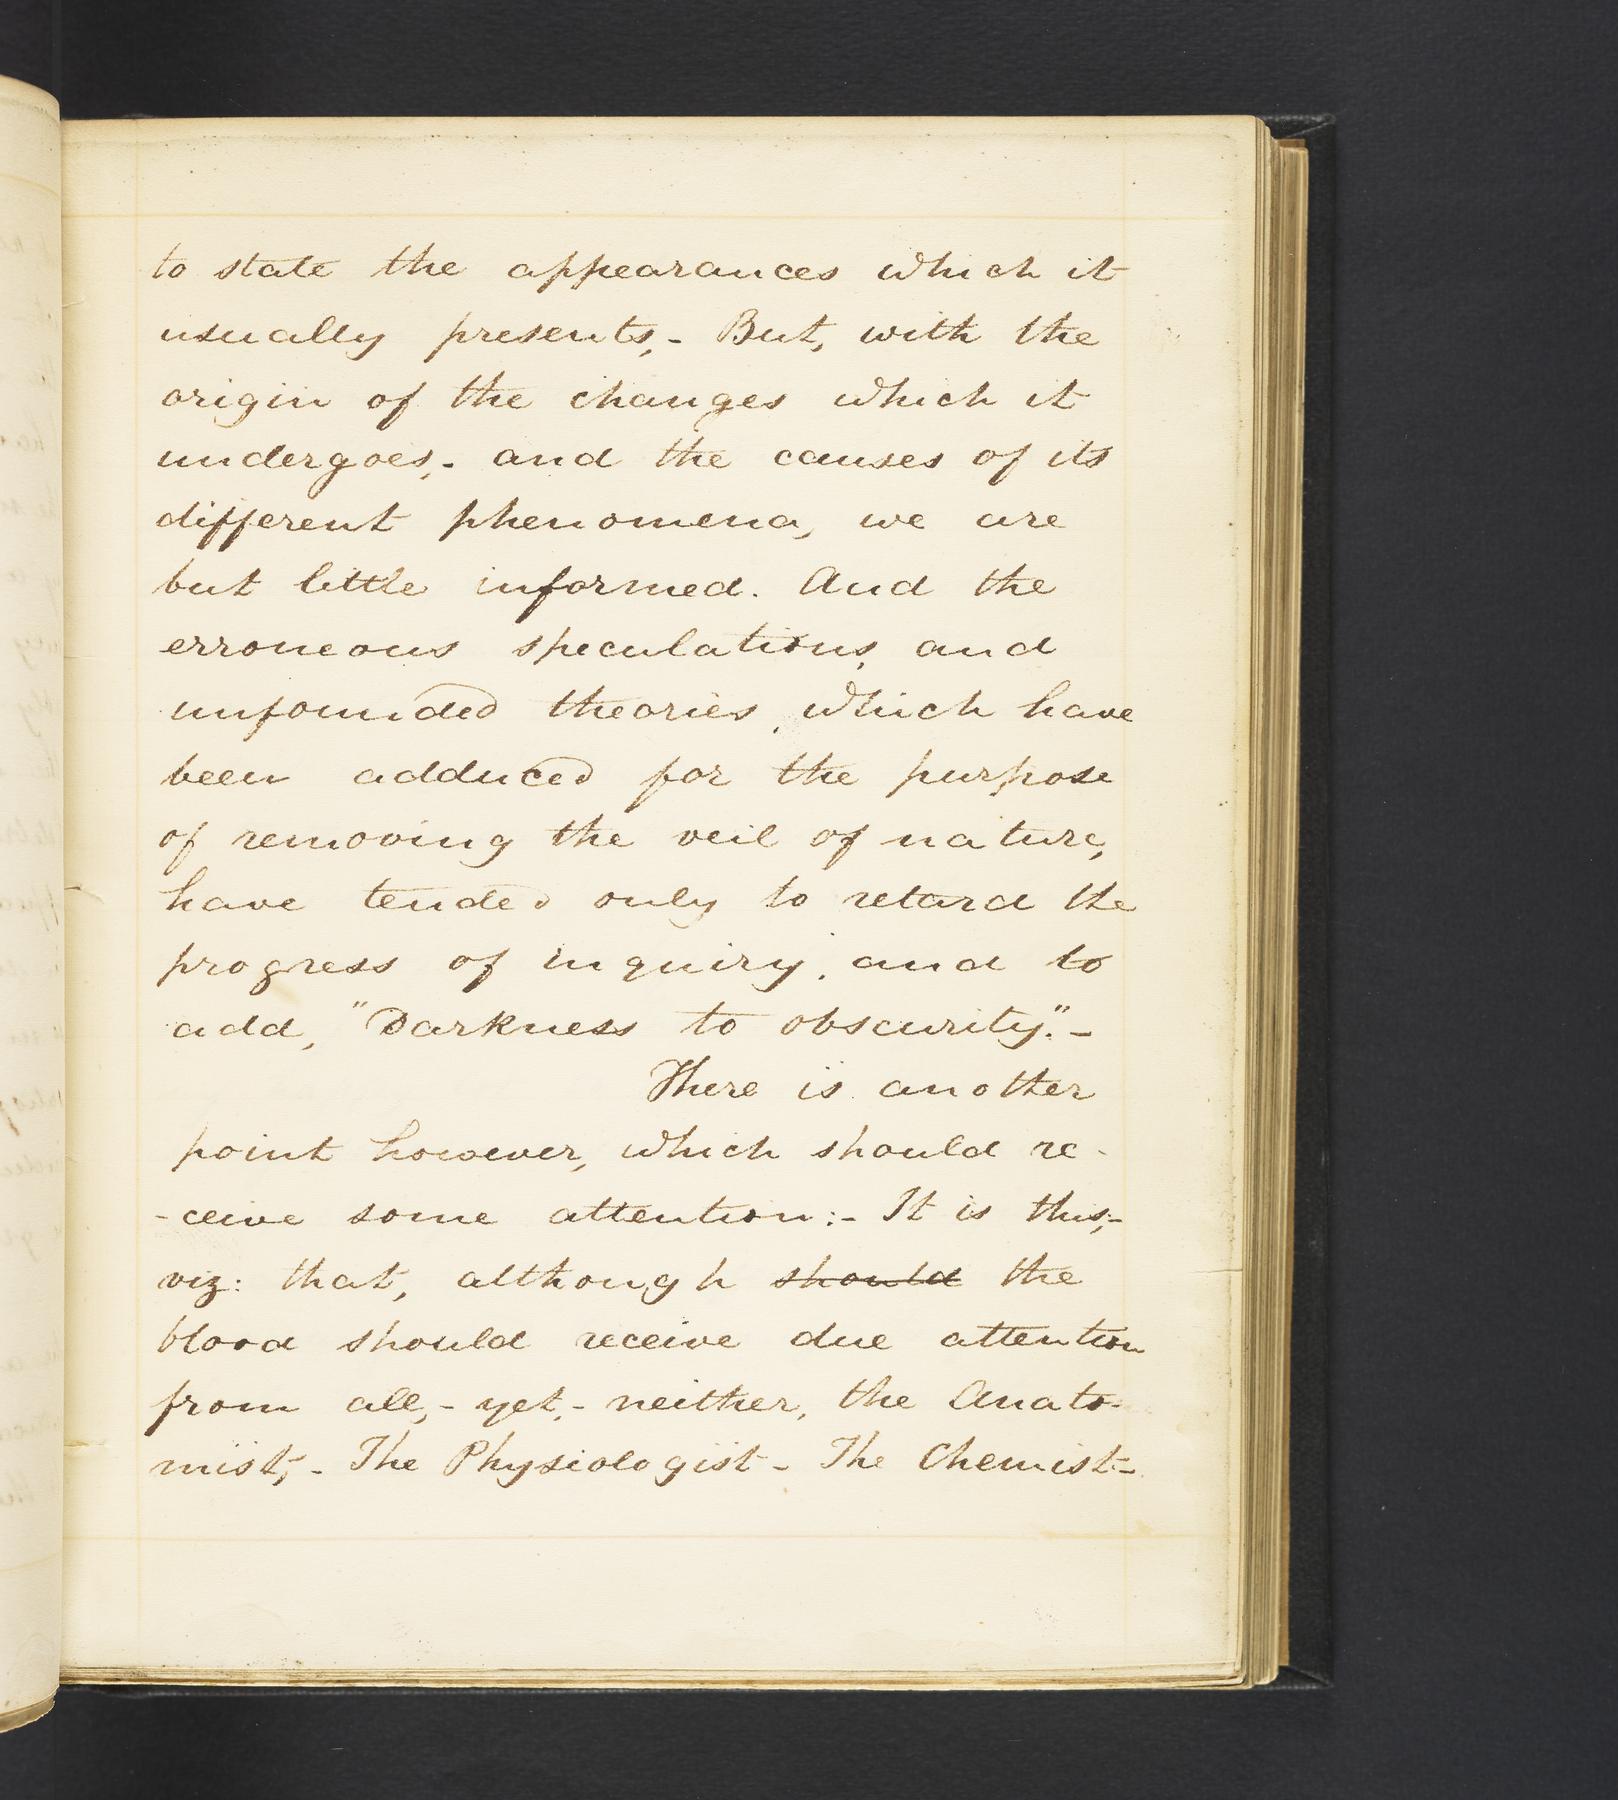 to state the appearances which it
usually presents,- But, with the
origin of the changes which it
undergoes,- and the causes of its
different phenomena, we are
but little informed. And the
erroneous speculations, and
unfounded theories, which have
been adduced for the purpose
of removing the veil of nature,
have tended only to retard the
progress of inquiry, and to
add, "Darkness to obscurity."-
There is another
point however, which should re-
-ceive some attention:- It is this,-
viz: that, although should the
blood should receive due attention
from all,- yet,- neither, the Anato-
mist,- The Physiologist- The Chemist-